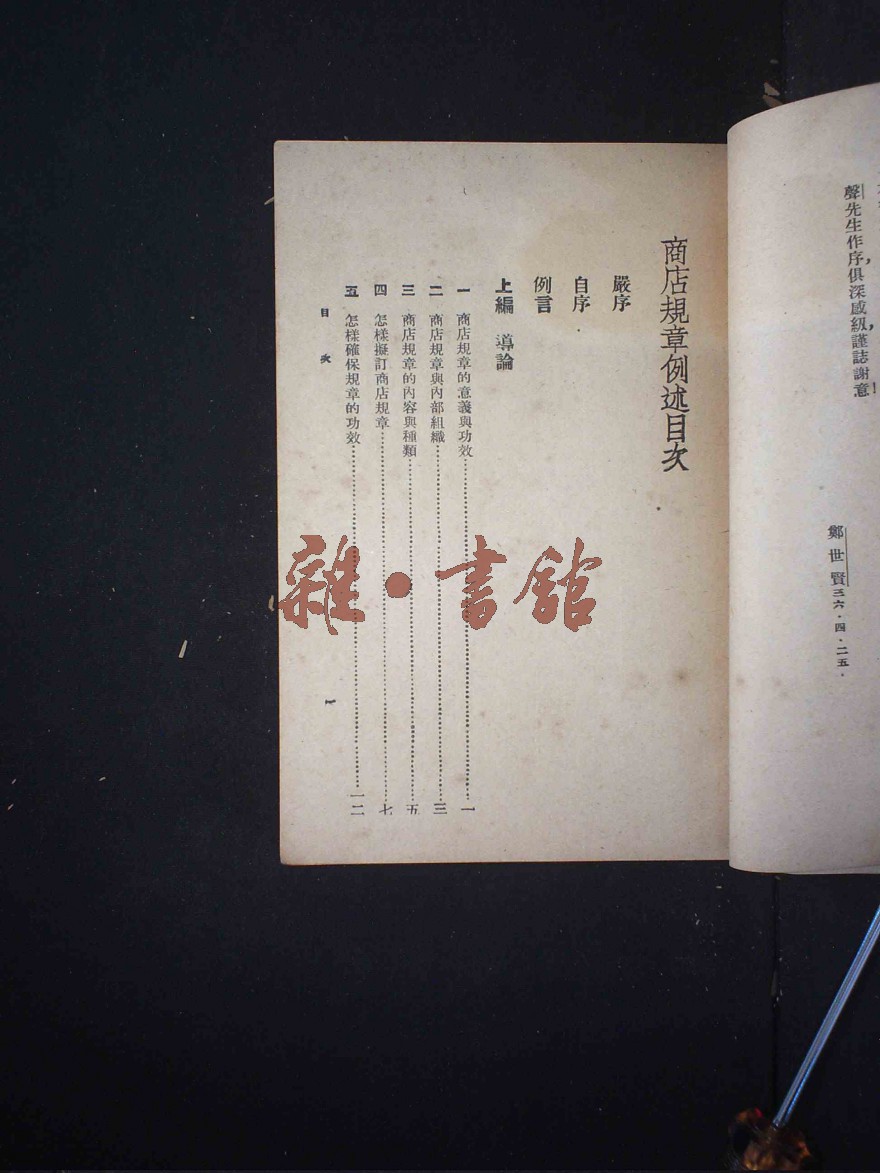 聲先生作序，俱深感級，謹誌謝意！
鄭世賢三六．四．二五．
商店規章例述目次
嚴序
自序
例言
上編　導論
一　商店規章的意義與功效……一
二　商店規章與內部組織……三
三　商店規章的內容與種類……五
四　怎樣擬訂商店規章……七
五　怎樣確保規章的功效……一二
目次　一
雜•書館